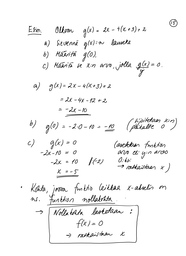 15
Esim. Olkoon g(x) = 2x - 4(x+3) + 2
a) Sievennä g(x):n lauseke
b) Määritä g(0).
c) Määritä se x:n arvo, jolla g(x) = 0.
y
a) g(x) = 2x - 4(x+3) + 2
= 2x - 4x - 12 + 2
= -2x - 10
b) g(0) = -2·0 - 10 = -10 (sijoitetaan x:n paikalle 0)
c) g(x) = 0 (asetetaan funktion
-2x - 10 = 0 arvo eli y:n arvo
-2x = 10 |:(-2) 0:ksi
x = -5 → ratkaistaan x)
Kohta, jossa funktio leikkaa x-akselin on
ns. funktion nollakohta
→ Nollakohta lasketaan:
f(x) = 0
→ ratkaistaan x